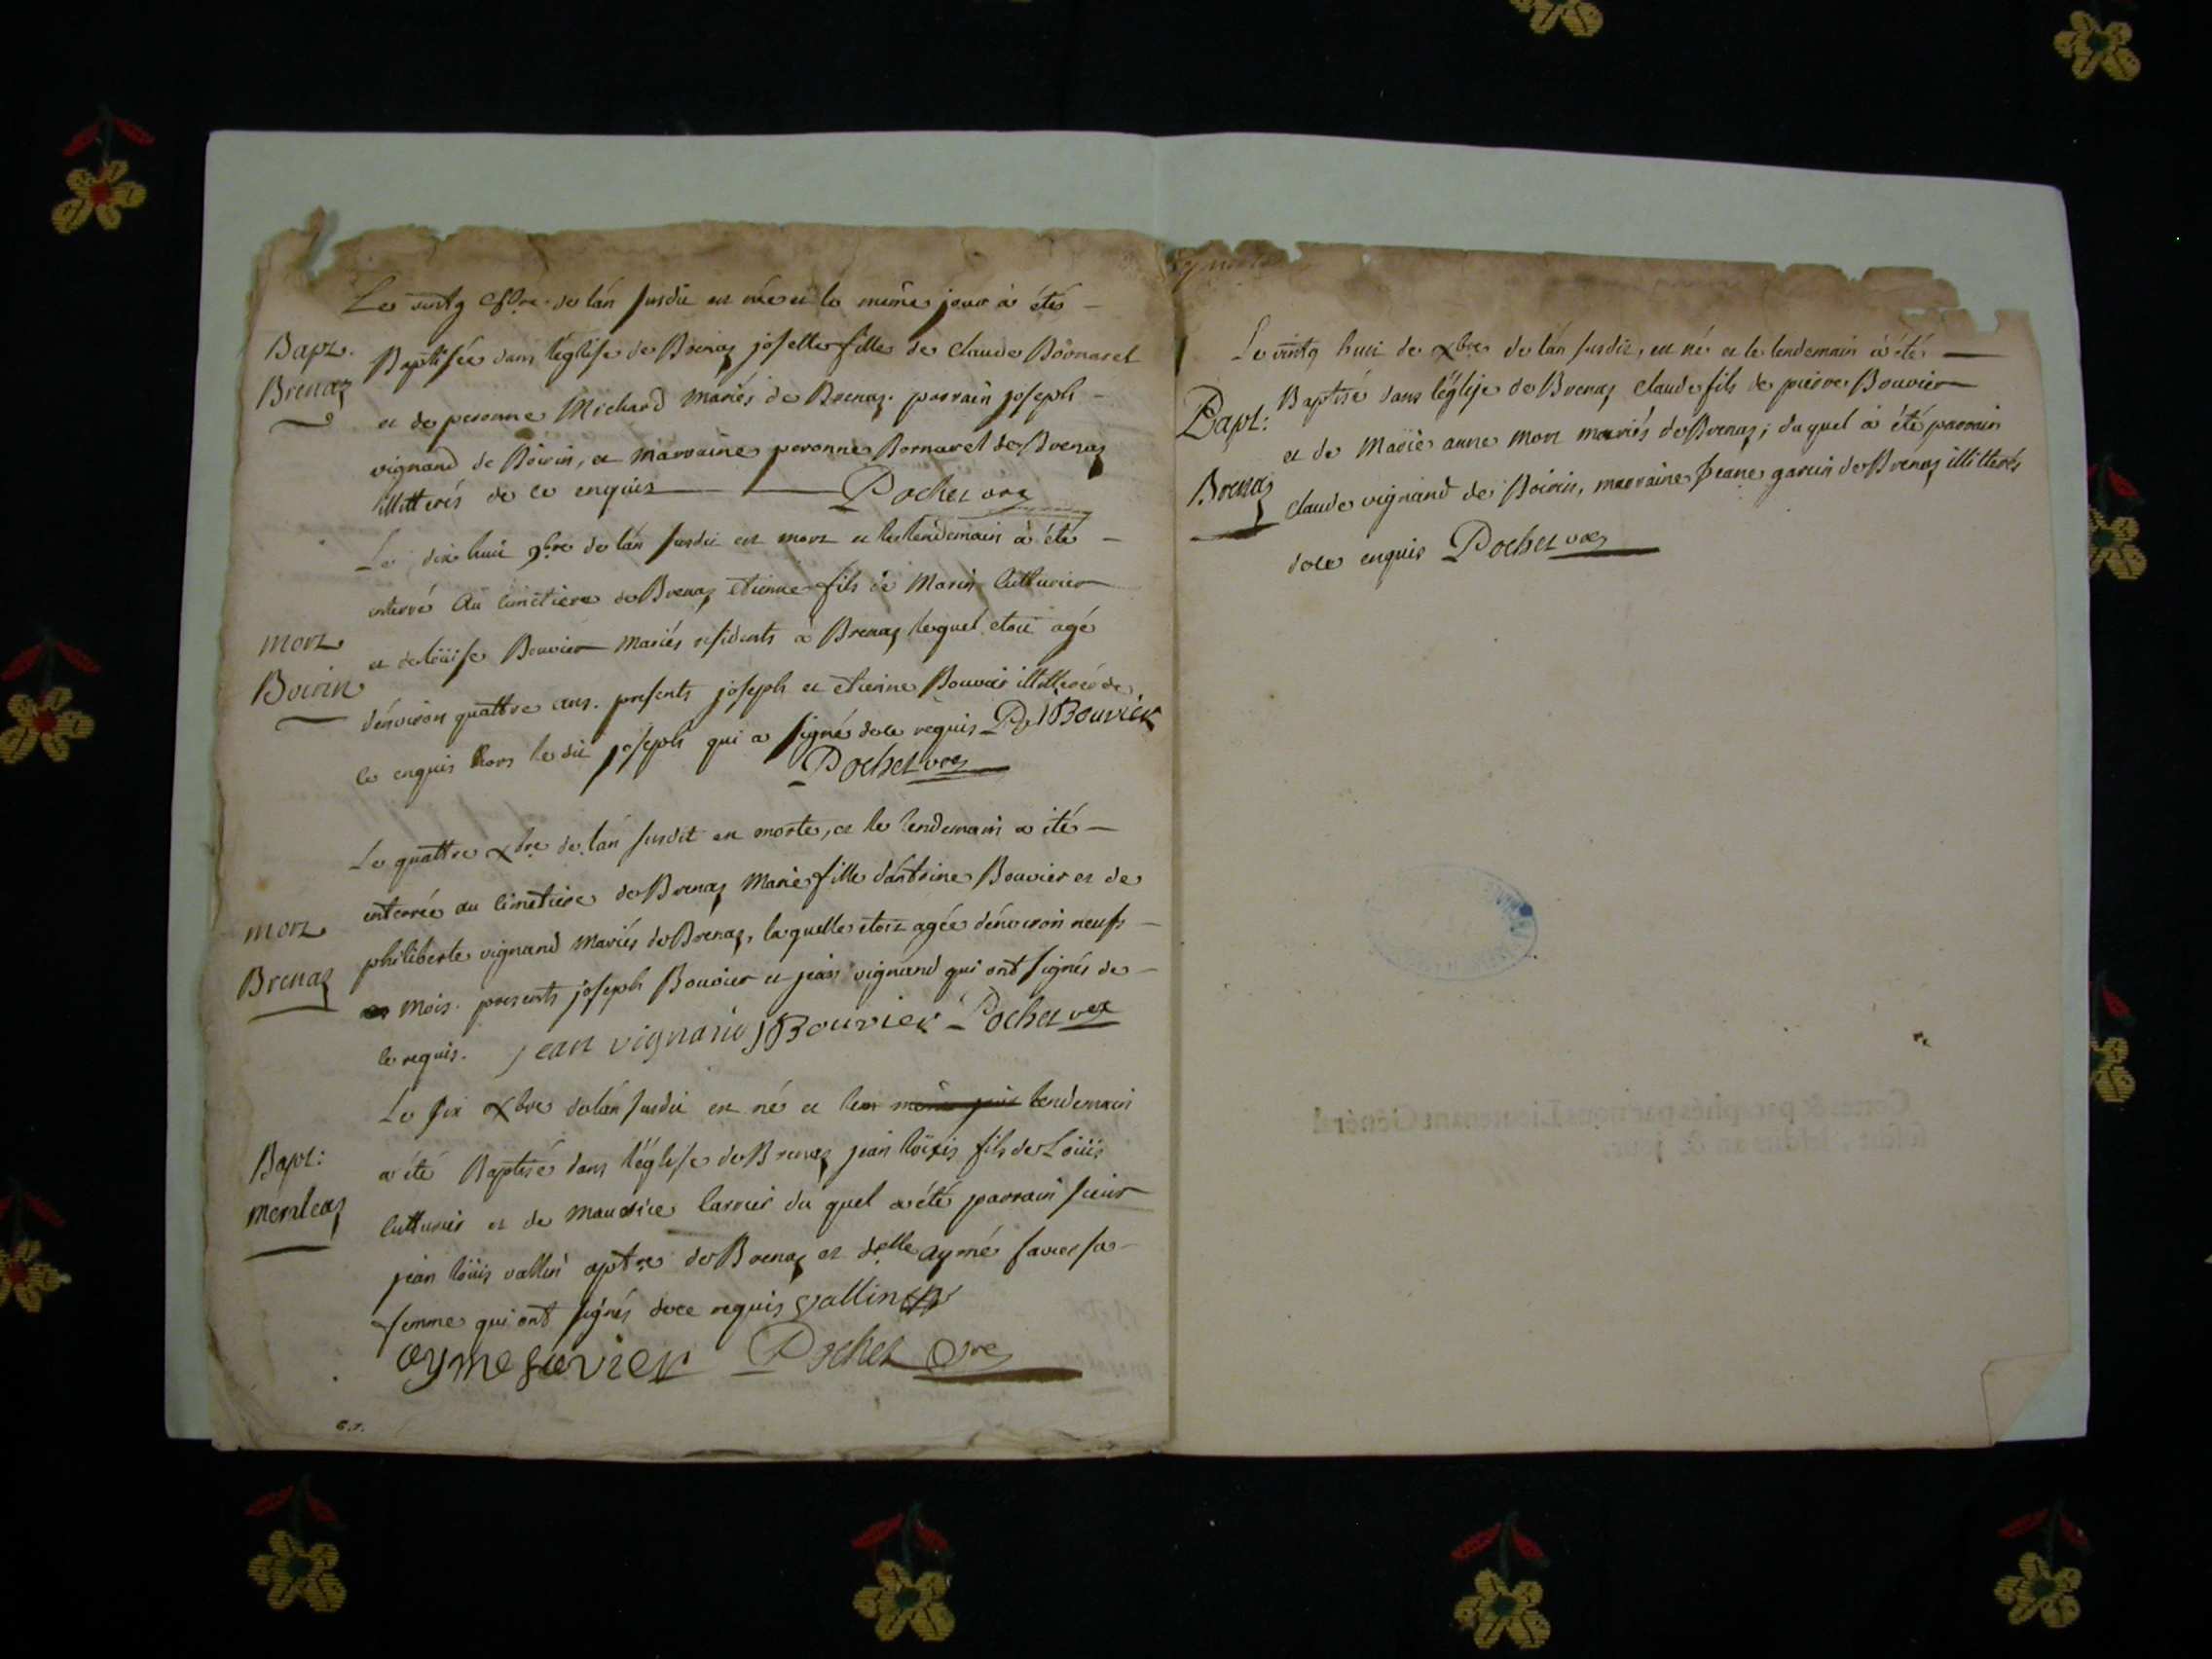 Le vintg 8bre de lán susdit est née et le même jour à étés
Bapt. Baptisée dans l'églises de Brenaz josette fille de Claude Bornaret
Brenaz et de peronne Michard mariés de Brenaz. parrain joseph
vignand de Boirin, et marraine peronne Bornaret de Brenaz
illitterés de ce enquis Pochet vre
Le dix huit 9bre de lán susdit est mort et le lendemain à éte
enterré au cimetiere de Brenaz etienne fils de Marin Cutturier
mort et de löuise Bouvier mariés residents à Brenaz lequel etoit agé
Boirin dénviron quattre ans. presents joseph et etienne Bouvier illitterés de
ce enquis hors le dit joseph qui a signé de ce requis Bouvier
Pochet vre
Le quattre xbre de lán susdit est morte, et le lendemain a été
enterrée au cimetiere de Brenaz Marie fille dántoine Bouvier et de
mort philiberte vignand mariés de Brenaz, laquelle etoit agée dénviron neufs
Brenaz mois. presents joseph Bouvier et jean vignand qui ont signés de
ce requis. jean vignand jBouvier Pochet vre
Le six xbre de lán susdit est né et le même jour lendemain
Bapt: a été Baptisé dans l'église de Brenaz jean löuis fils de Löuis
meraleaz Cutturier et de Maurice Larrier du quel a été parrain sieur
jean löuis vallin de Brenaz et delle aymé savier sa
femme qui ont signés de ce requis vallin
ayme savier Pochet vre
Le vintg huit de xbre de lán susdit, est né et le lendemain à été
Bapt: Baptisé dans l'église de Brenaz Claude fils de pierre Bouvier
et de Marie anne Mort mariés de Brenaz; du quel à été parrain
Brenaz Claude vignand de Boirin, marraine Jeane garin de Brenaz illitterés
de ce enquis Pochet vre